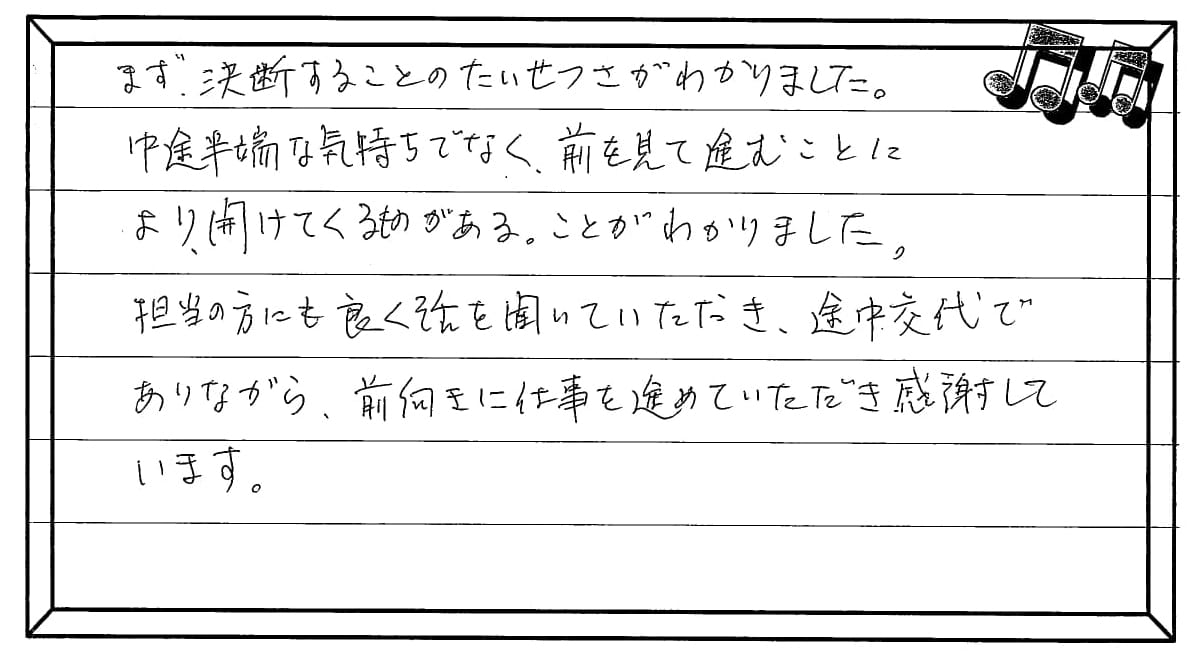 まず、決断することのたいせつさがわかりました。
中途半端な気持ちでなく、前を見て途むことに
より、開けてくるものがある。ことがわかりました。
担当の方にも良く話を聞いていただき、途中交代で
ありながら、前向きに仕事を途めていただき感謝すして
います。